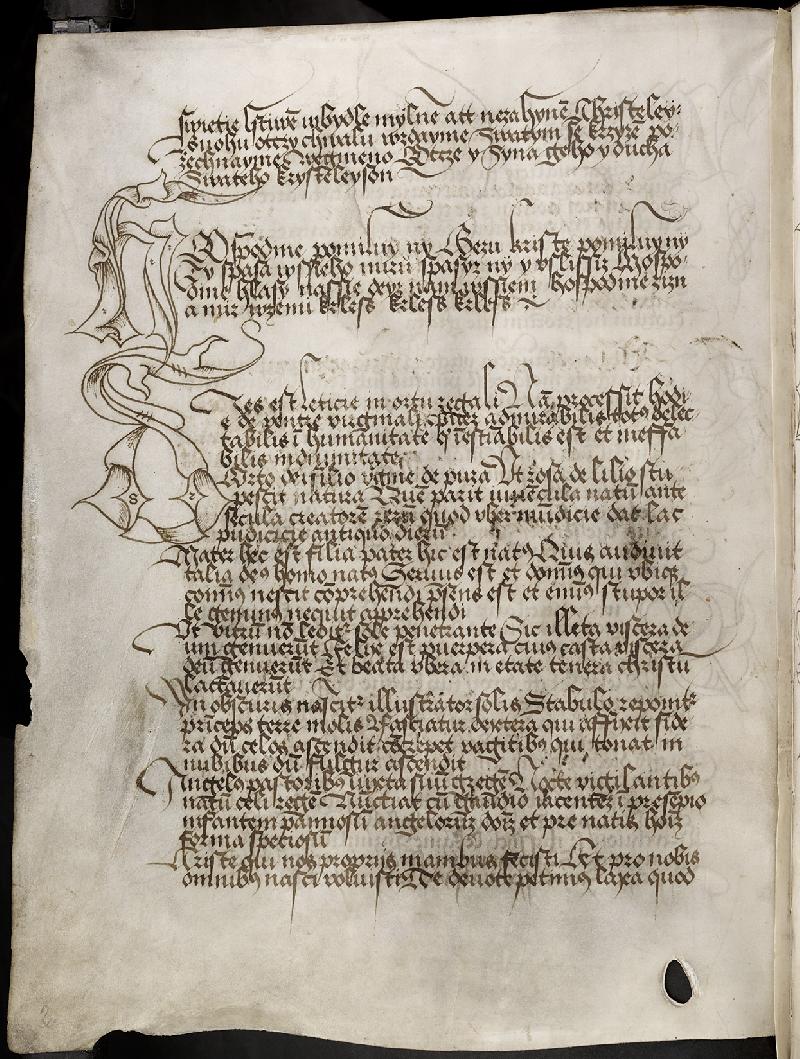 swietie lstiwe wbydle mylne att nezahyne Christeley:
Buohu otczy chwalu wzdayme Swatym se krzyze po:
zechnayme weymeno Otcze y Syna geho y ducha
Swateho krysteleyson
Hospodine pomiluy ny Gezu kriste pomyluy ny
Ty spasa wssieho miru spasyz ny y vslissiz Hospo:
dine hlasy nassie dayz nam wssiem hospodine zizn
a mir wzemi krless krless krless
Dies est leticie in ortu regali Nā processit hodi
e de ventre virginali puer admirabilis totꝰ delec
tabilis ī humanitate qui īestīabilis est et ineffa
bilis in diuinitate
Orto dei filio vgine de pura Vt rosa de lilio stu
pescit natura Quē parit iuuēcula natū ante
secula creatorē rerū quod vber mūdicie dat lac
pudicicie antiquo dierū
Mater hec est filia pater hic est natꝰ Quis audiuit
talia deꝰ homo natꝰ Seruus est et domīꝰ qui vbique
comīꝰ nescit cōprehendi pn̄s est et emīꝰ stupor il
le gemīnꝰ nequit apprehendi
Vt vitrū nō leditur sole penetrante Sic illesa viscera de
um genuerūt Felix est puerpera cuiꝰ casta viscera
deū genuerūt Et beata vbera in etate tenera christū
lactauerūt
In obscuris nascitur illustrator solis Stabulo reponitur
prīceps terre molis Fasciatur dextera qui affixit side
ra dū celos ascendit cōcrepet vagitibꝰ qui tonat in
nubibus dū fulgur ascendit
Angelꝰ pastoribꝰ iuxta suū gregē Nocte vigilantibꝰ
natū celi regē Nūctiat cū gaudio iacentez ī presepio
infantem pannosū angelorūz dom̄z et pre natis hoīz
forma speciosū
Christe qui nos proprijs manibus fecisti Et pro nobis
omnibꝰ nasci voluisti Te deuote petimꝰ laxa quod